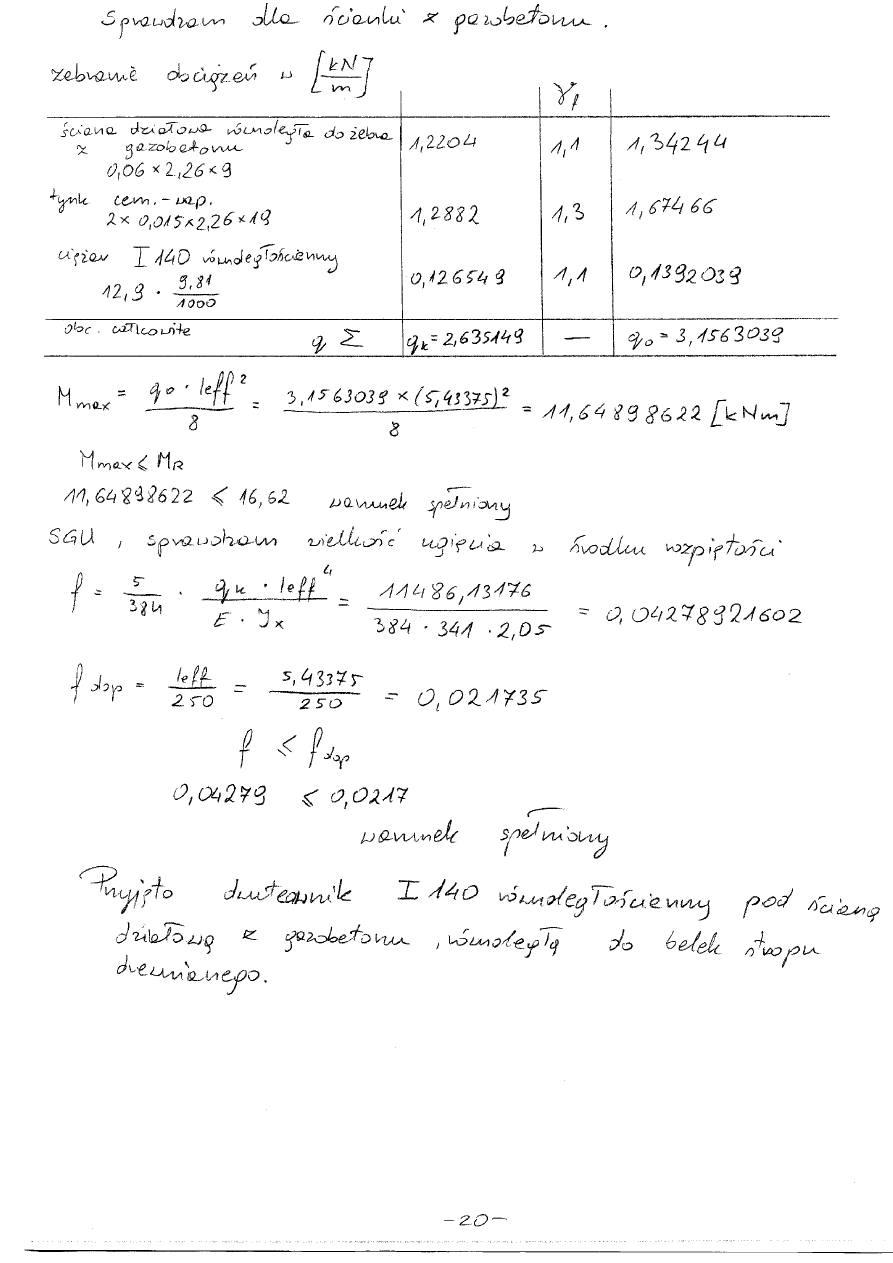 Sprawdzam dla ścianki z gazobetonu.
zebranie obciążeń w [kN/m]
γf
ściana działowa równoległa do żebra z gazobetonu
0,06 × 2,26 × 9
1,2204 1,1 1,34244
tynk cem.-wap.
2 × 0,015 × 2,26 × 19
1,2882 1,3 1,67466
ciężar I 140 równoległościenny
12,9 · 9,81/1000
0,126549 1,1 0,1392039
obc. całkowite q Σ qk = 2,635149 — qo = 3,1563039
Mmax = qo · leff²/8 = 3,1563039 × (5,43375)²/8 = 11,64898622 [kNm]
Mmax ≤ MR
11,64898622 ≤ 16,62 warunek spełniony
SGU, sprawdzam wielkość ugięcia w środku rozpiętości
f = 5/384 · qk · leff⁴/E · Jx = 11486,13176/384 · 341 · 2,05 = 0,04278921602
f dop = leff/250 = 5,43375/250 = 0,021735
f ≤ f dop
0,04279 ≤ 0,0217
warunek spełniony
Przyjęto dwuteownik I 140 równoległościenny pod ścianą
działową z gazobetonu, równoległą do belek stropu
drewnianego.
-20-